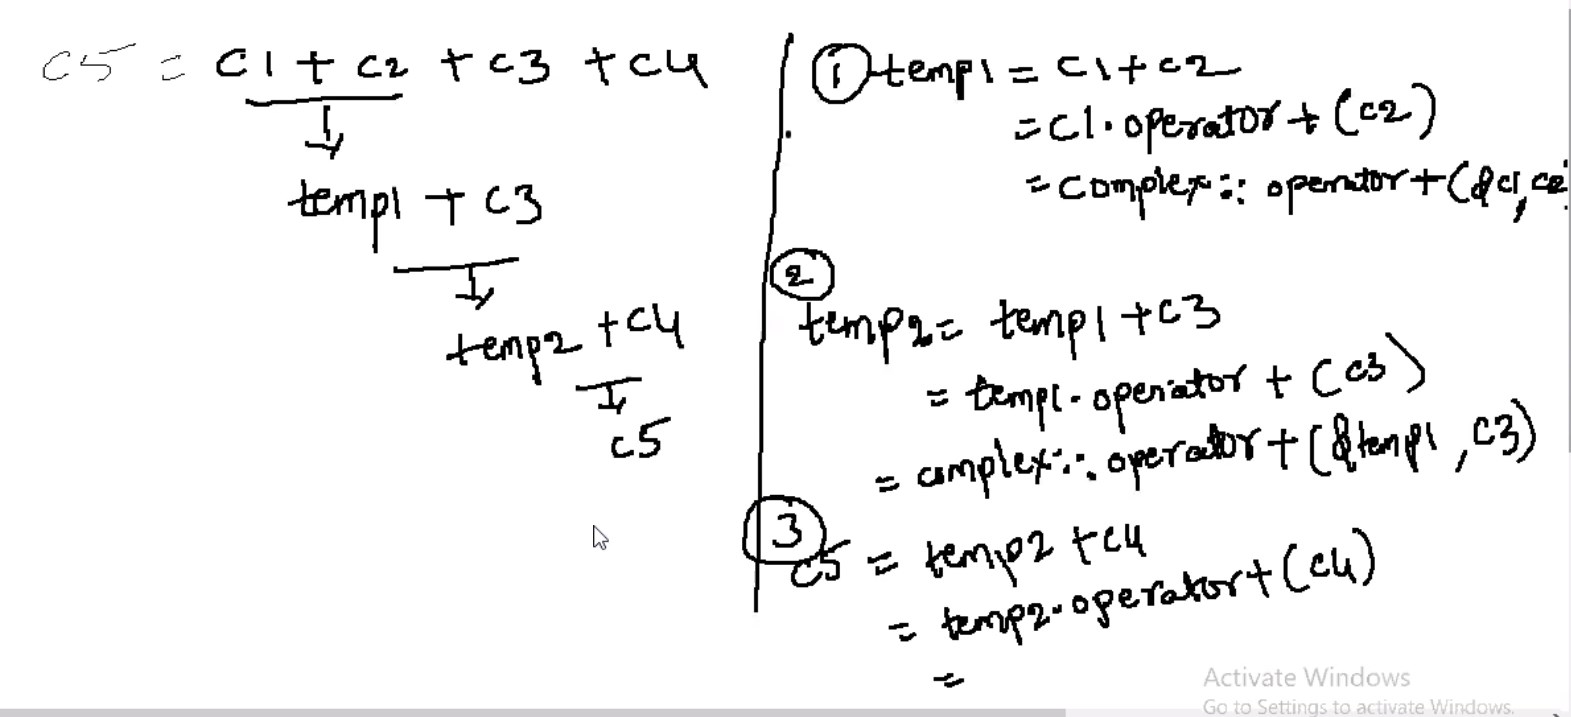 c5 = c1 + c2 + c3 + c4
temp1 + c3
temp2 + c4
c5
① temp1 = c1 + c2
= c1.operator + (c2)
= complex:: operator + (&c1, c2
②
temp2 = temp1 + c3
= temp1.operator + (c3)
= complex:: operator + (&temp1, c3)
③
c5 = temp2 + c4
= temp2.operator + (c4)
=
Activate Windows
Go to Settings to activate Windows.